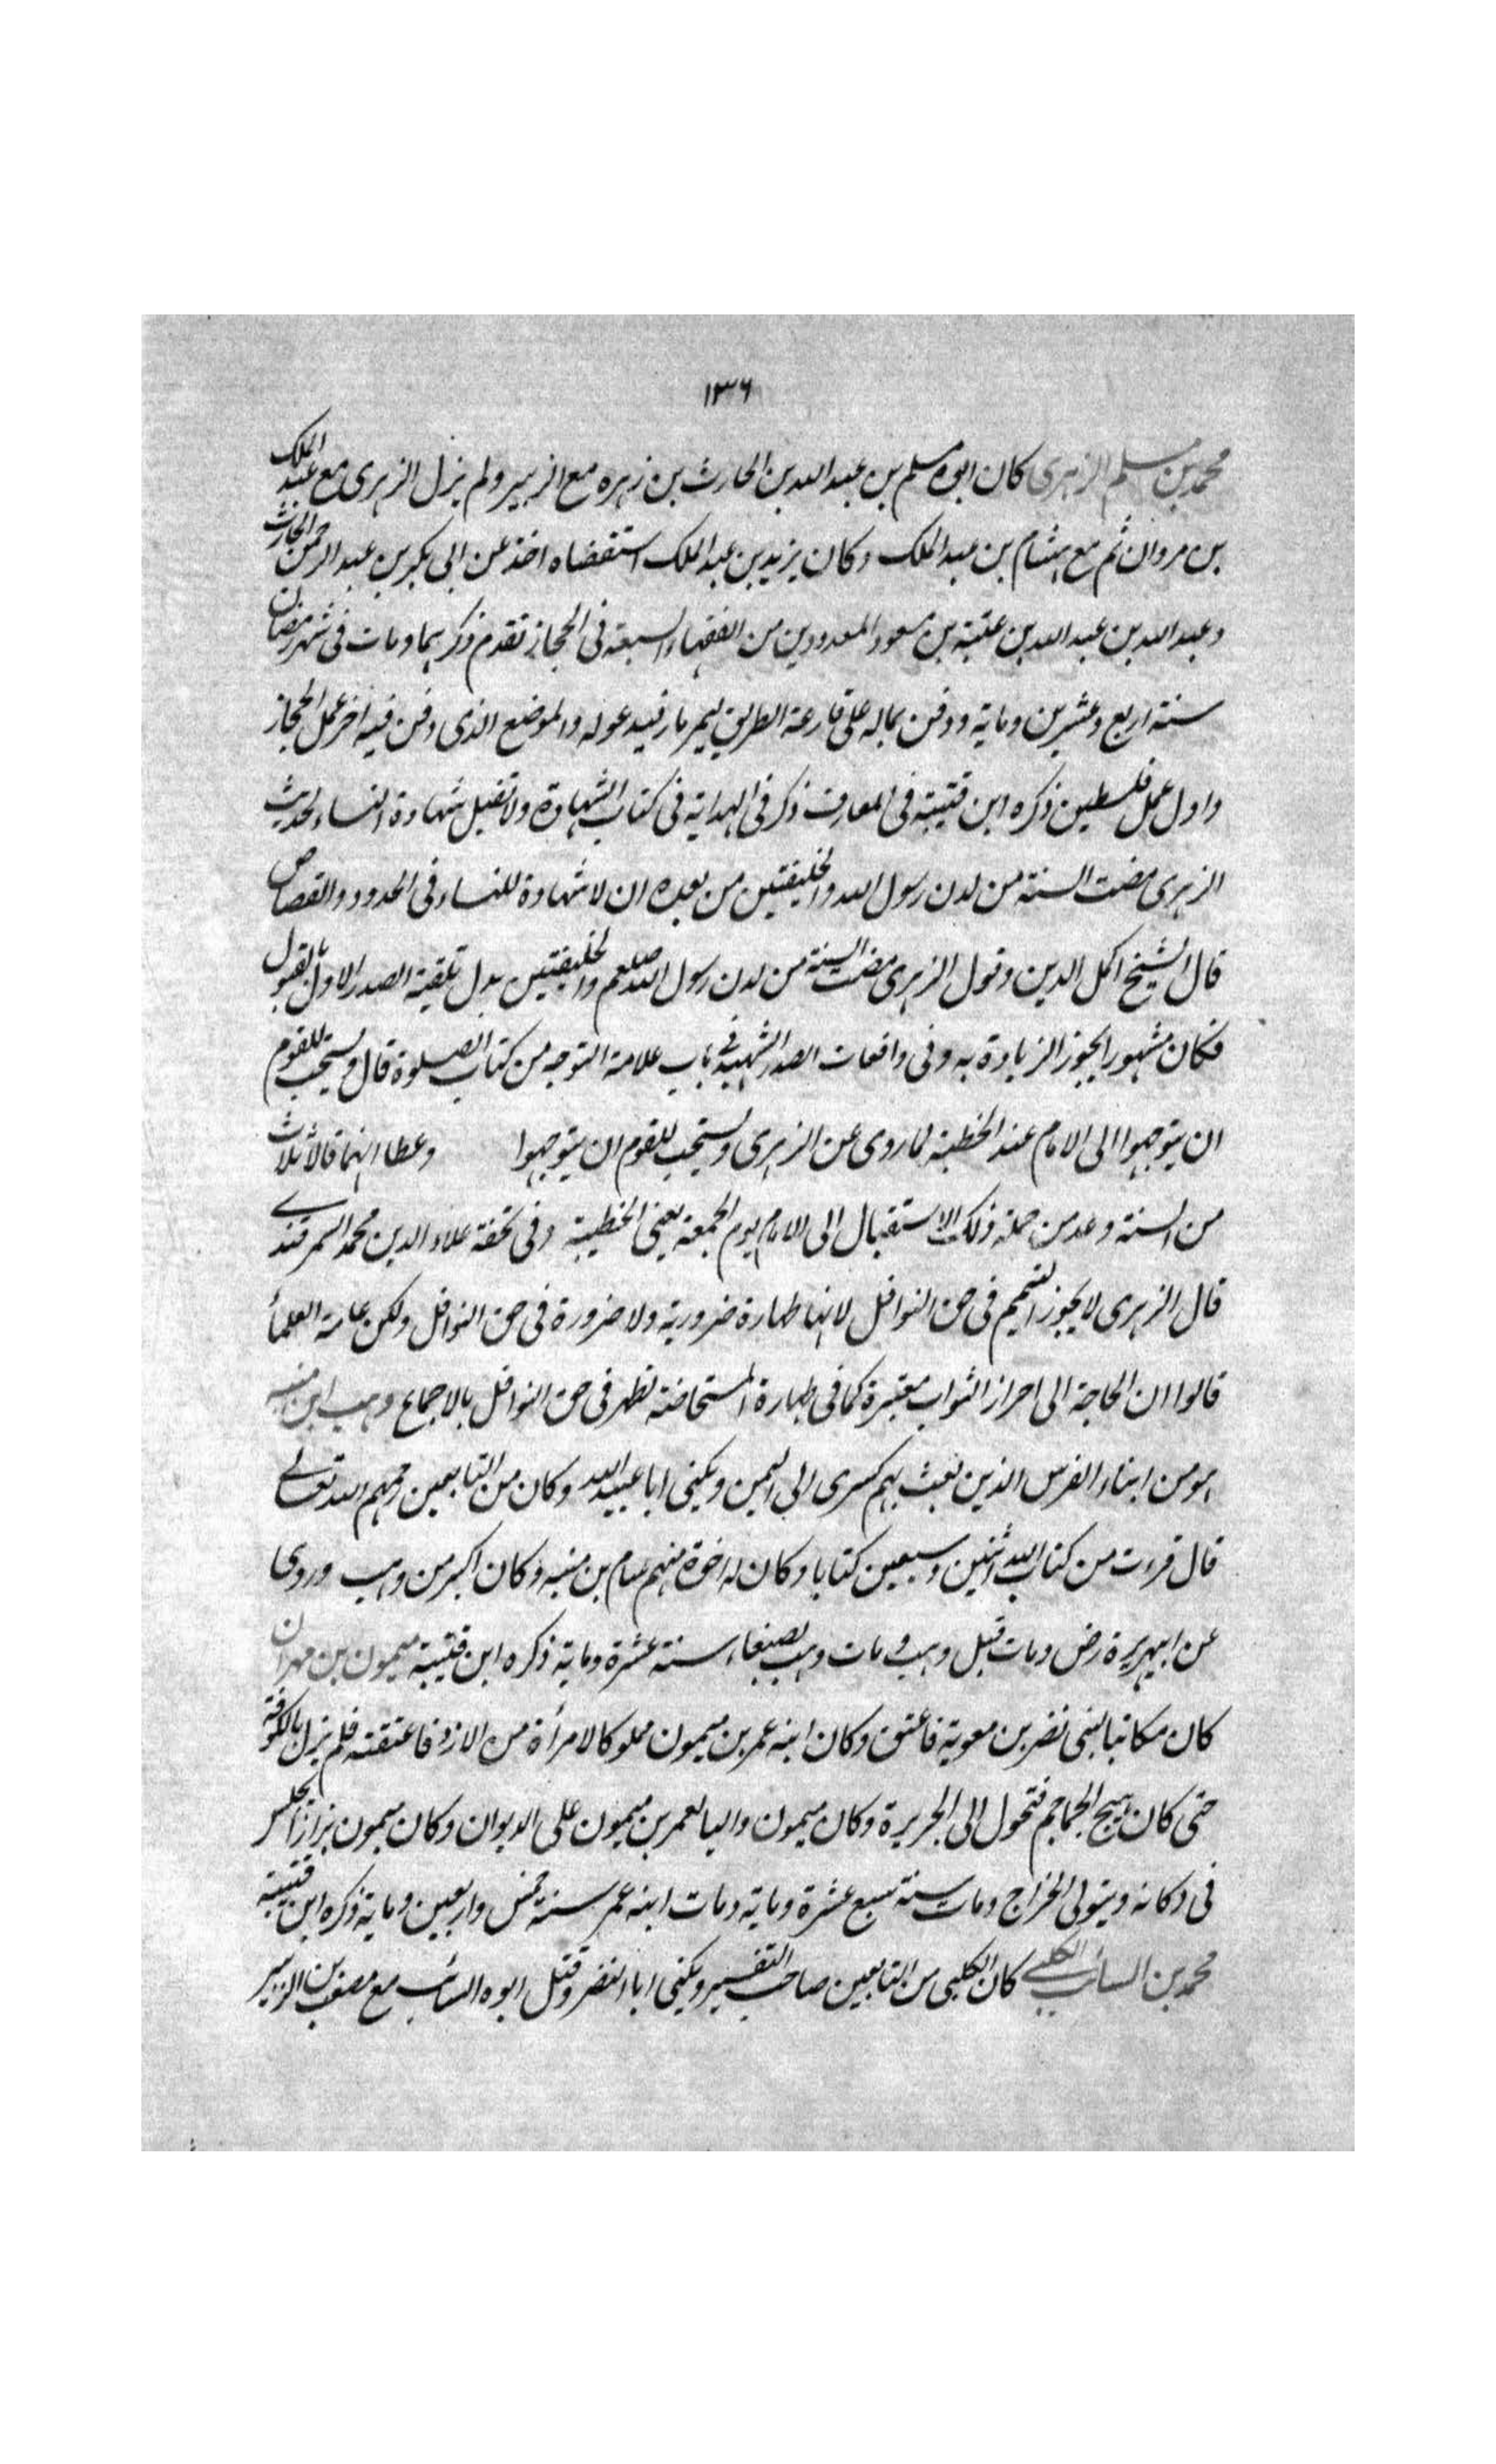 ١٣٦
محمد بن مسلم الزهرى كان ابوه مسلم بن عبد الله بن الحارث بن زهره مع الزبير ولم يزل الزهرى مع عبد الملك
بن مروان ثم مع هشام بن عبد الملك وكان يزيد بن عبد الملك استقضاه اخذ عن ابى بكر بن عبد الرحمن الحارث
وعبد الله بن عبد الله بن عتبة بن مسعود المعدودين من الفقهاء السبعة فى الحجاز تقدم ذكرهما ومات فى شهر رمضان
سنة اربع وعشرين وماية ودفن بماله على قارعة الطريق ليمر مار فيدعو له والموضع الذى دفن فيه اخر عمل الحجاز
واول عمل فلسطين ذكره ابن قتيبة فى المعارف ذكر فى الهداية فى كتاب الشهادة ولا تقبل شهادة النساء لحديث
الزهرى مضت السنة من لدن رسول الله والخليفتين من بعده ان لا شهادة للنساء فى الحدود والقصاص
قال الشيخ اكمل الدين وقول الزهرى مضت السنة من لدن رسول الله صلعم والخليفتين يدل تلقية الصدر الاول بالقبول
فكان مشهورا يجوز الزيادة به وفى واقعات الصدر الشهيد فى باب علامة التوجه من كتاب الصلوة قال ويستحب للقوم
ان يتوجهوا الى الامام عند الخطبة لما روى عن الزهرى ويستحب للقوم ان يتوجهوا وعطا انهما قالا ثلاث
من السنة وعد من جملة ذلك الاستقبال الى الامام يوم الجمعة يعنى الخطبة وفى تحفة علاء الدين محمد السمرقندى
قال الزهرى لا يجوز التيمم فى حق النوافل لانها طهارة ضرورية ولا ضرورة فى حق النوافل ولكن عامة العلماء
قالوا ان الحاجة الى احراز الثواب معتبرة كما فى طهارة المستحاضة تظهر فى حق النوافل بالاجماع وهب ابن منبه
هو من ابناء الفرس الذين بعث بهم كسرى الى اليمن ويكنى ابا عبد الله وكان من التابعين رحمهم الله تعالى
قال قرءت من كتاب الله اثنين وسبعين كتابا وكان له اخوة منهم همام بن منبه وكان اكبر من وهب وروى
عن ابيهريرة رض ومات قبل وهب ومات وهب بصنعاء سنة عشرة وماية ذكره ابن قتيبة ميمون بن مهران
كان مكاتبا لبنى نضر بن معوية فاعتق وكان ابنه عمر بن ميمون مملوكا لامرأة من الازد فاعتقته فلم يزل بالكوفة
حتى كان هيج الجماجم فتحول الى الجزيرة وكان ميمون واليا لعمر بن ميمون على الديوان وكان ميمون بزازا يجلس
فى دكانه ويتولى الخراج ومات سنة سبع عشرة وماية ومات ابنه عمر سنة خمس واربعين وماية ذكره ابن قتيبة
محمد بن السائب الكلبى كان الكلبى من التابعين صاحب التفسير ويكنى ابا النضر وقتل ابوه السائب مع مصعب بن الزبير